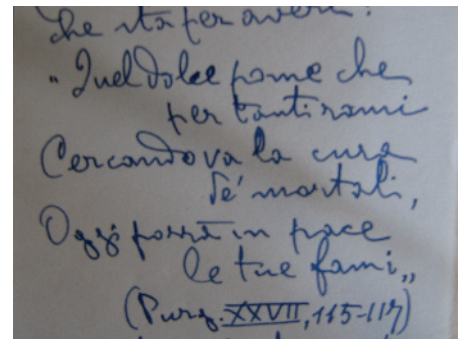 che sta per avere:
"Quel dolce pome che
per tanti rami
Cercando va la cura
de' mortali,
Oggi porrà in pace
le tue fami„
(Purg. XXVII, 115-117)